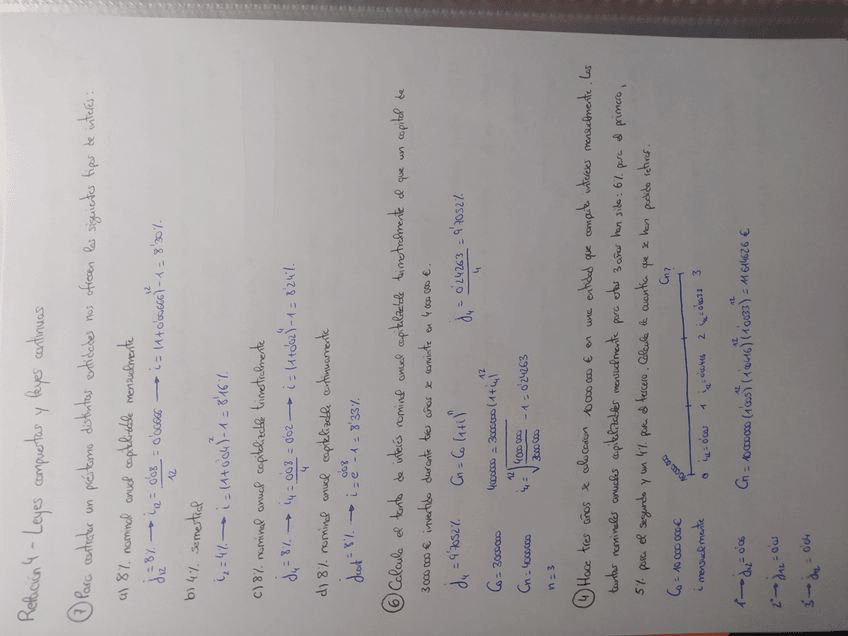 Relación 4 - Leyes compuestas y leyes continuas
⑦ Para contratar un préstamo distintas entidades nos ofrecen los siguientes tipos de interés:
a) 8% nominal anual capitalizable mensualmente
j12 = 8% → i12 = 0'08/12 = 0'00666 → i = (1+0'00666)^12 - 1 = 8'30%
b) 4% semestral
i2 = 4% → i = (1+0'04)^2 - 1 = 8'16%
c) 8% nominal anual capitalizable trimestralmente
j4 = 8% → i4 = 0'08/4 = 0'02 → i = (1+0'02)^4 - 1 = 8'24%
d) 8% nominal anual capitalizable continuamente
jcont = 8% → i = e^0'08 - 1 = 8'33%
⑥ Calcula el tanto de interés nominal anual capitalizable trimestralmente al que un capital de
3000000 € invertido durante tres años se convierte en 4000000 €.
j4 = 9'7052% Cn = C0 (1+i)^n j4 = 0'24263/4 = 9'7052%
C0 = 3000000 4000000 = 3000000 (1+i4)^12
Cn = 4000000 i4 = 12√(4000000/3000000) - 1 = 0'24263
n = 3
④ Hace tres años se colocaron 10000000 € en una entidad que computa intereses mensualmente. Los
tantos nominales anuales capitalizables mensualmente para estos 3 años han sido: 6% para el primero,
5% para el segundo y un 4% para el tercero. Calcula la cuantía que se han podido retirar.
C0 = 10000000 € Cn?
i mensualmente 0 i12 = 0'005 1 2 3
1º → j12 = 0'06 Cn = 10000000 (1'005)^12 (1'00416)^12 (1'0033)^12 = 11614626 €
2º → j12 = 0'05
3º → j12 = 0'04